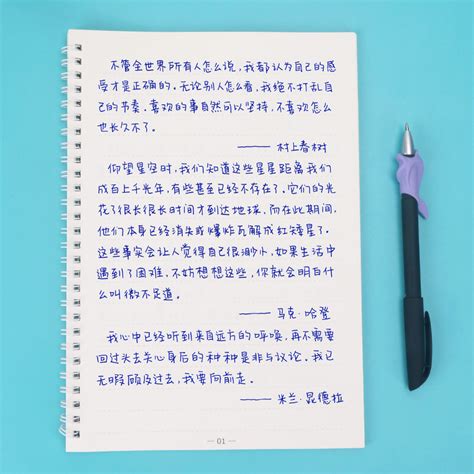 不管全世界所有人怎么说,我都认为自己的感
受才是正确的.无论别人怎么看,我绝不打乱自
己的节奏.喜欢的事自然可以坚持,不喜欢怎么
也长久不了.
——村上春树
仰望星空时,我们知道这些星星距离我们
成百上千光年,有些甚至已经不存在了.它们的光
花了很长很长时间才到达地球,而在此期间,
他们本身已经消失或爆炸瓦解成红矮星了.
这些事实会让人觉得自己很渺小,如果生活中
遇到了困难,不妨想想这些,你就会明白什
么叫微不足道.
——马克·哈登
我心中已经听到来自远方的呼唤,再不需要
回过头去关心身后的种种是非与议论.我已
无暇顾及过去,我要向前走.
——米兰·昆德拉
— 01 —